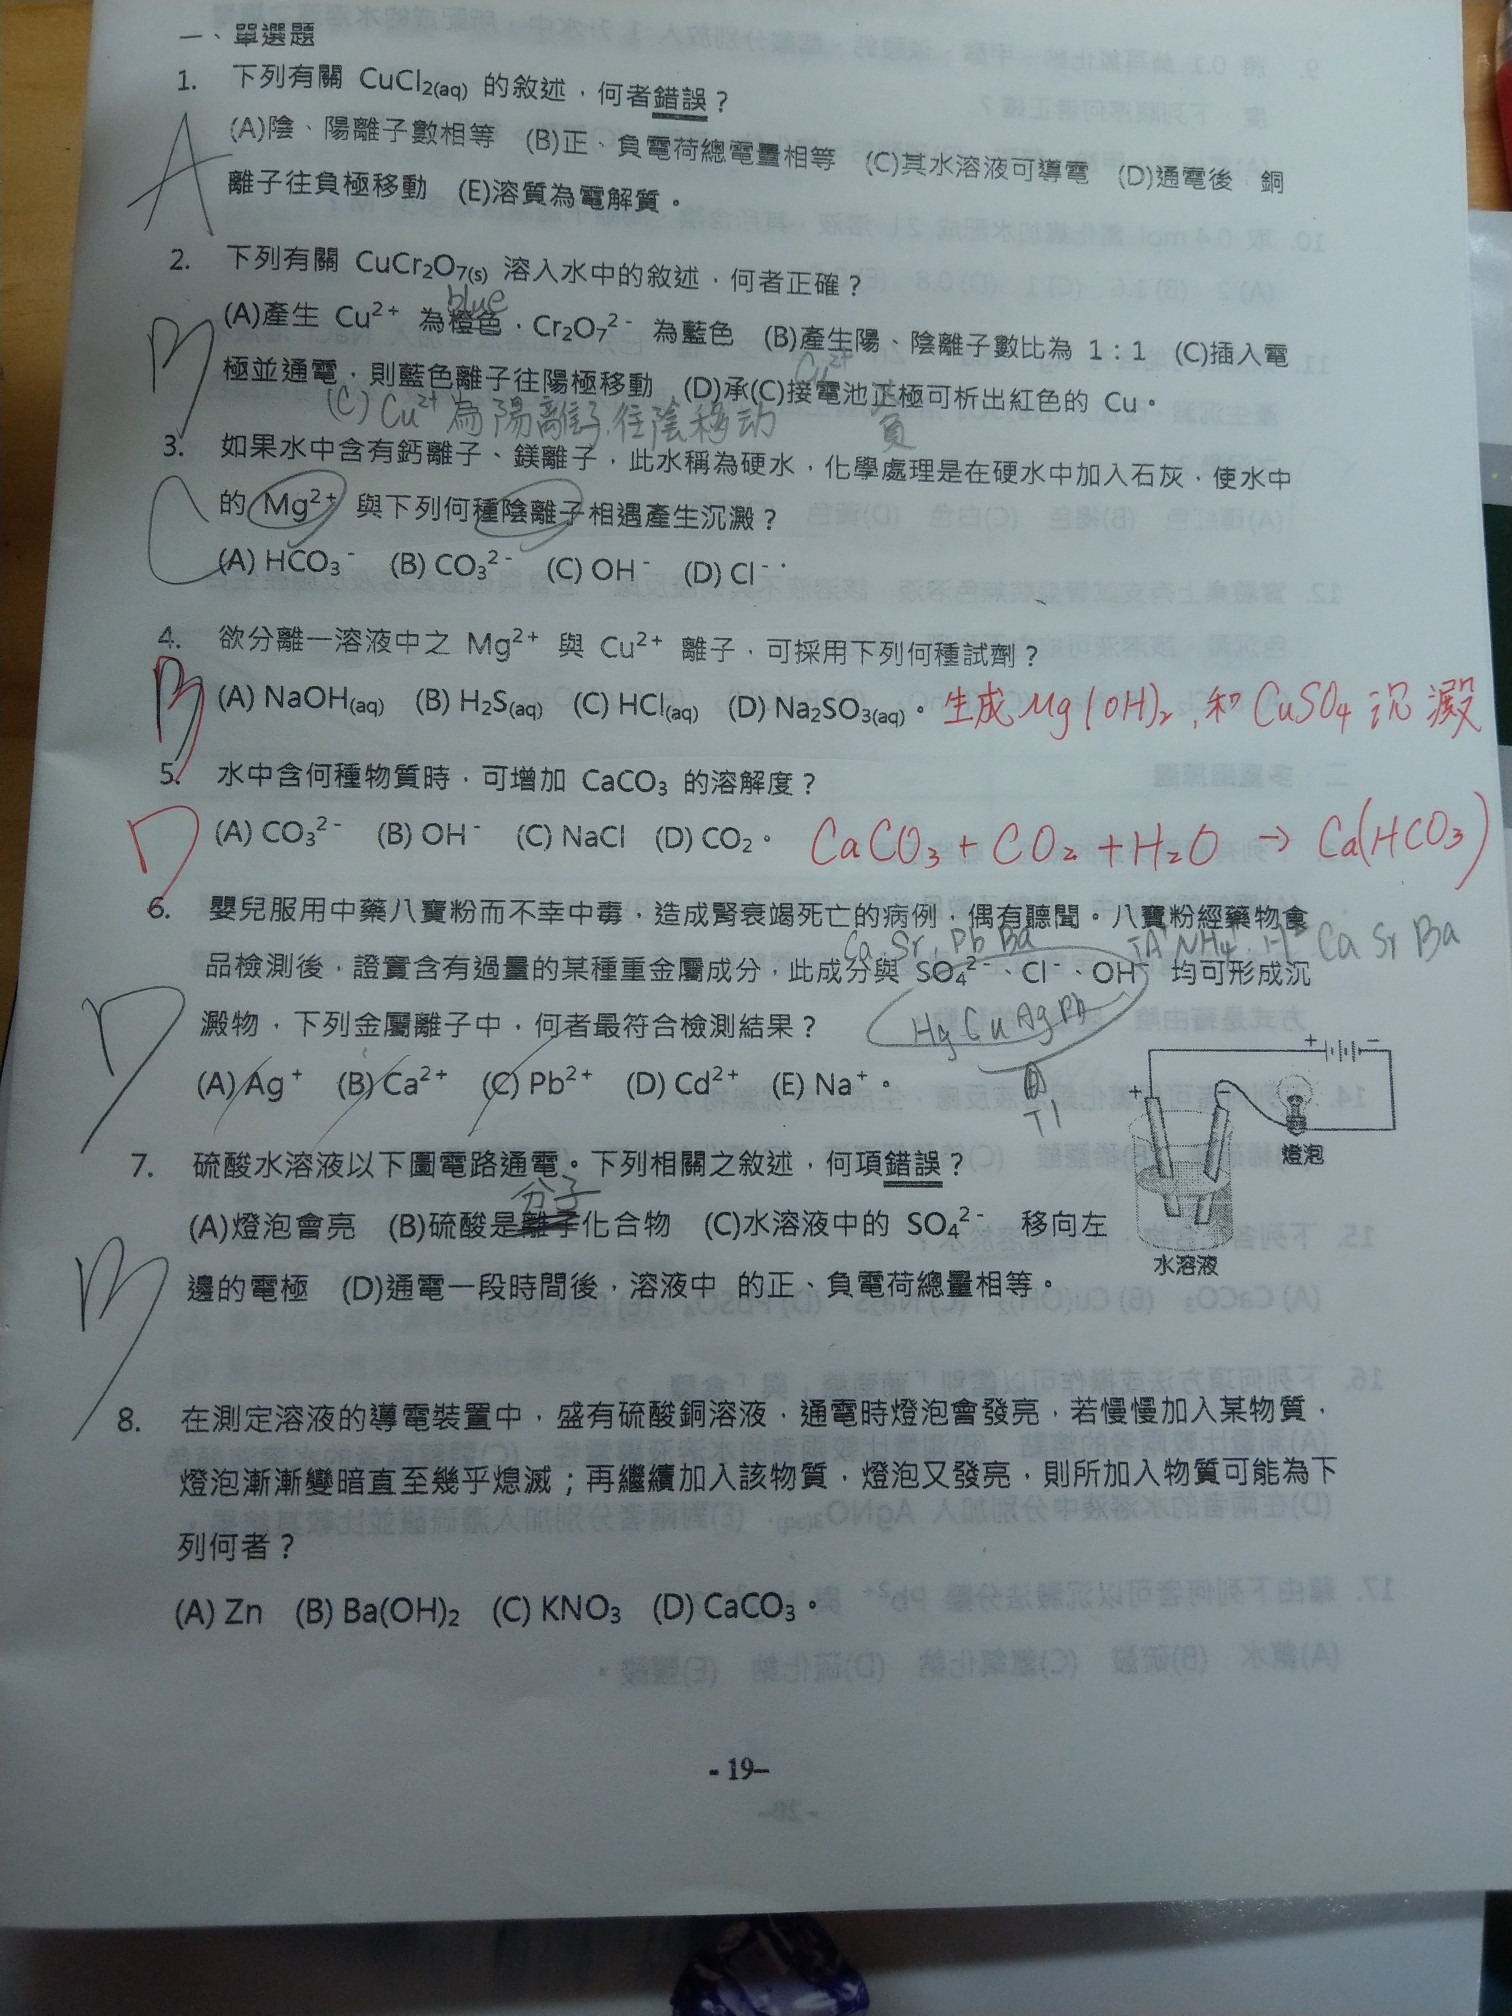 一、單選題
1. 下列有關 CuCl₂(aq) 的敘述，何者錯誤？
A
(A)陰、陽離子數相等 (B)正、負電荷總電量相等 (C)其水溶液可導電 (D)通電後，銅
離子往負極移動 (E)溶質為電解質。
2. 下列有關 CuCr₂O₇(s) 溶入水中的敘述，何者正確？
blue
B
(A)產生 Cu²⁺ 為橙色，Cr₂O₇²⁻ 為藍色 (B)產生陽、陰離子數比為 1：1 (C)插入電
Cu²⁺
極並通電，則藍色離子往陽極移動 (D)承(C)接電池正極可析出紅色的 Cu。
(C) Cu²⁺為陽離子,往陰移动 負
3. 如果水中含有鈣離子、鎂離子，此水稱為硬水，化學處理是在硬水中加入石灰，使水中
C
的 Mg²⁺ 與下列何種陰離子相遇產生沉澱？
(A) HCO₃⁻ (B) CO₃²⁻ (C) OH⁻ (D) Cl⁻．
4. 欲分離一溶液中之 Mg²⁺ 與 Cu²⁺ 離子，可採用下列何種試劑？
B
(A) NaOH(aq) (B) H₂S(aq) (C) HCl(aq) (D) Na₂SO₃(aq)。 生成Mg(OH)₂,和CuSO₄沉澱
5. 水中含何種物質時，可增加 CaCO₃ 的溶解度？
D
(A) CO₃²⁻ (B) OH⁻ (C) NaCl (D) CO₂。 CaCO₃+CO₂+H₂O→Ca(HCO₃)
6. 嬰兒服用中藥八寶粉而不幸中毒，造成腎衰竭死亡的病例，偶有聽聞。八寶粉經藥物食
Ca,Sr,Pb Ba IA⁺ NH₄⁺ H⁺ Ca Sr Ba
品檢測後，證實含有過量的某種重金屬成分，此成分與 SO₄²⁻、Cl⁻、OH⁻ 均可形成沉
D
澱物，下列金屬離子中，何者最符合檢測結果？
Hg Cu Ag Pb
(A) Ag⁺ (B) Ca²⁺ (C) Pb²⁺ (D) Cd²⁺ (E) Na⁺。
Tl
7. 硫酸水溶液以下圖電路通電。下列相關之敘述，何項錯誤？
分子
B
(A)燈泡會亮 (B)硫酸是離子化合物 (C)水溶液中的 SO₄²⁻ 移向左
邊的電極 (D)通電一段時間後，溶液中 的正、負電荷總量相等。
+ −
+
燈泡
水溶液
8. 在測定溶液的導電裝置中，盛有硫酸銅溶液，通電時燈泡會發亮，若慢慢加入某物質，
燈泡漸漸變暗直至幾乎熄滅；再繼續加入該物質，燈泡又發亮，則所加入物質可能為下
列何者？
(A) Zn (B) Ba(OH)₂ (C) KNO₃ (D) CaCO₃。
- 19–